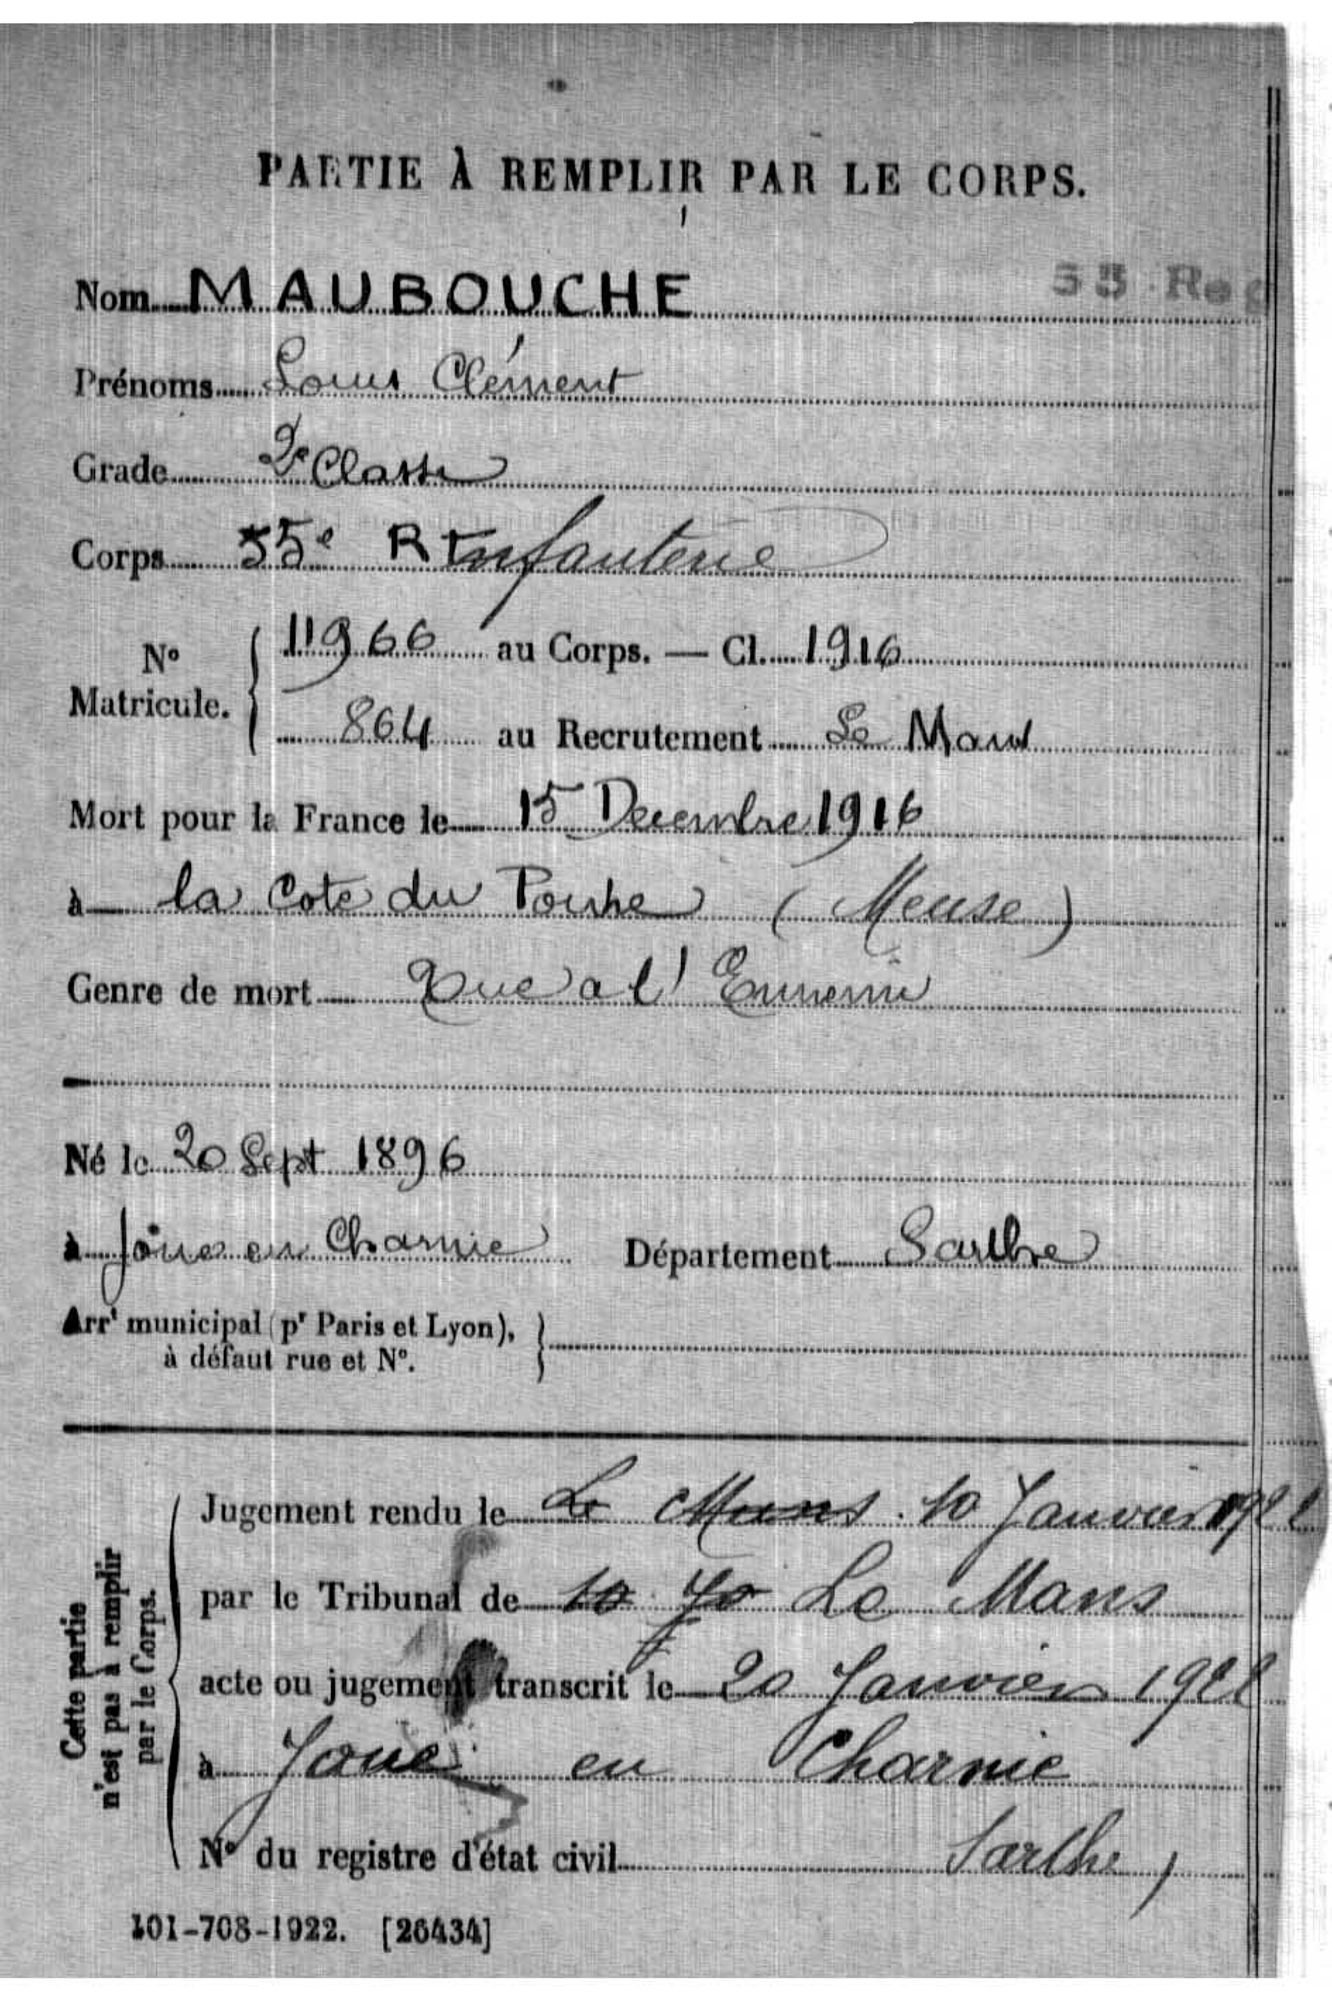 PARTIE À REMPLIR PAR LE CORPS.
Nom MAUBOUCHE
55 Reg
Prénoms Louis Clément
Grade 2e Classe
Corps 55e R Infanterie
No Matricule. 11966 au Corps. — Cl. 1916
864 au Recrutement Le Mans
Mort pour la France le 15 Decembre 1916
à la Cote du Poivre (Meuse)
Genre de mort Tué a l'Ennemi
Né le 20 Sept 1896
à Joué en Charnie Département Sarthe
Arrt municipal (pr Paris et Lyon),
à défaut rue et No.
Cette partie
n'est pas à remplir
par le Corps.
Jugement rendu le Le Mans. 10 Janvier
par le Tribunal de 10 Le Mans
acte ou jugement transcrit le 20 Janvier
à Joué en Charnie
No du registre d'état civil Sarthe
101-708-1922. [26434]